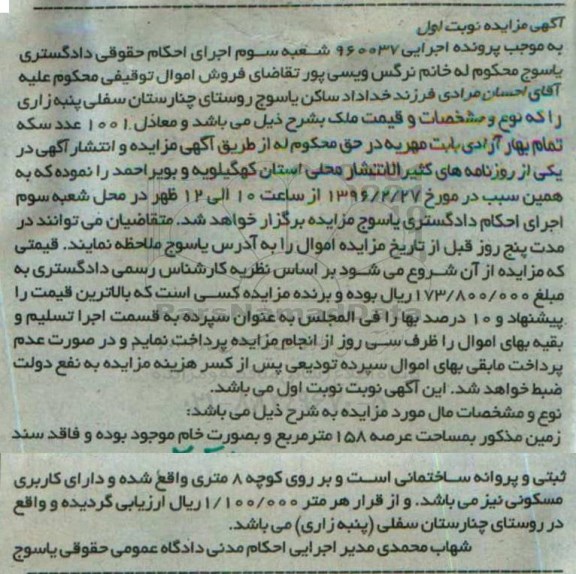 آگهی مزایده نوبت اول
به موجب پرونده اجرایی ۹۶۰۰۳۷ شعبه سوم اجرای احکام حقوقی دادگستری
یاسوج محکوم له خانم نرگس ویسی پور تقاضای فروش اموال توقیفی محکوم علیه
آقای احسان مرادی فرزند خداداد ساکن یاسوج روستای چنارستان سفلی پنبه زاری
را که نوع و مشخصات و قیمت ملک بشرح ذیل می باشد و معادل ۱۰۰۱ عدد سکه
تمام بهار آزادی بابت مهریه در حق محکوم له از طریق آگهی مزایده و انتشار آگهی در
یکی از روزنامه های کثیرالانتشار محلی استان کهگیلویه و بویراحمد را نموده که به
همین سبب در مورخ ۱۳۹۶/۲/۲۷ از ساعت ۱۰ الی ۱۲ ظهر در محل شعبه سوم
اجرای احکام دادگستری یاسوج مزایده برگزار خواهد شد. متقاضیان می توانند در
مدت پنج روز قبل از تاریخ مزایده اموال را به آدرس یاسوج ملاحظه نمایند. قیمتی
که مزایده از آن شروع می شود بر اساس نظریه کارشناس رسمی دادگستری به
مبلغ ۱۷۳/۸۰۰/۰۰۰ ریال بوده و برنده مزایده کسی است که بالاترین قیمت را
پیشنهاد و ۱۰ درصد بها را فی المجلس به عنوان سپرده به قسمت اجرا تسلیم و
بقیه بهای اموال را ظرف سی روز از انجام مزایده پرداخت نماید و در صورت عدم
پرداخت مابقی بهای اموال سپرده تودیعی پس از کسر هزینه مزایده به نفع دولت
ضبط خواهد شد. این آگهی نوبت نوبت اول می باشد.
نوع و مشخصات مال مورد مزایده به شرح ذیل می باشد:
زمین مذکور بمساحت عرصه ۱۵۸ مترمربع و بصورت خام موجود بوده و فاقد سند
ثبتی و پروانه ساختمانی است و بر روی کوچه ۸ متری واقع شده و دارای کاربری
مسکونی نیز می باشد. و از قرار هر متر ۱/۱۰۰/۰۰۰ ریال ارزیابی گردیده و واقع
در روستای چنارستان سفلی (پنبه زاری) می باشد.
شهاب محمدی مدیر اجرایی احکام مدنی دادگاه عمومی حقوقی یاسوج